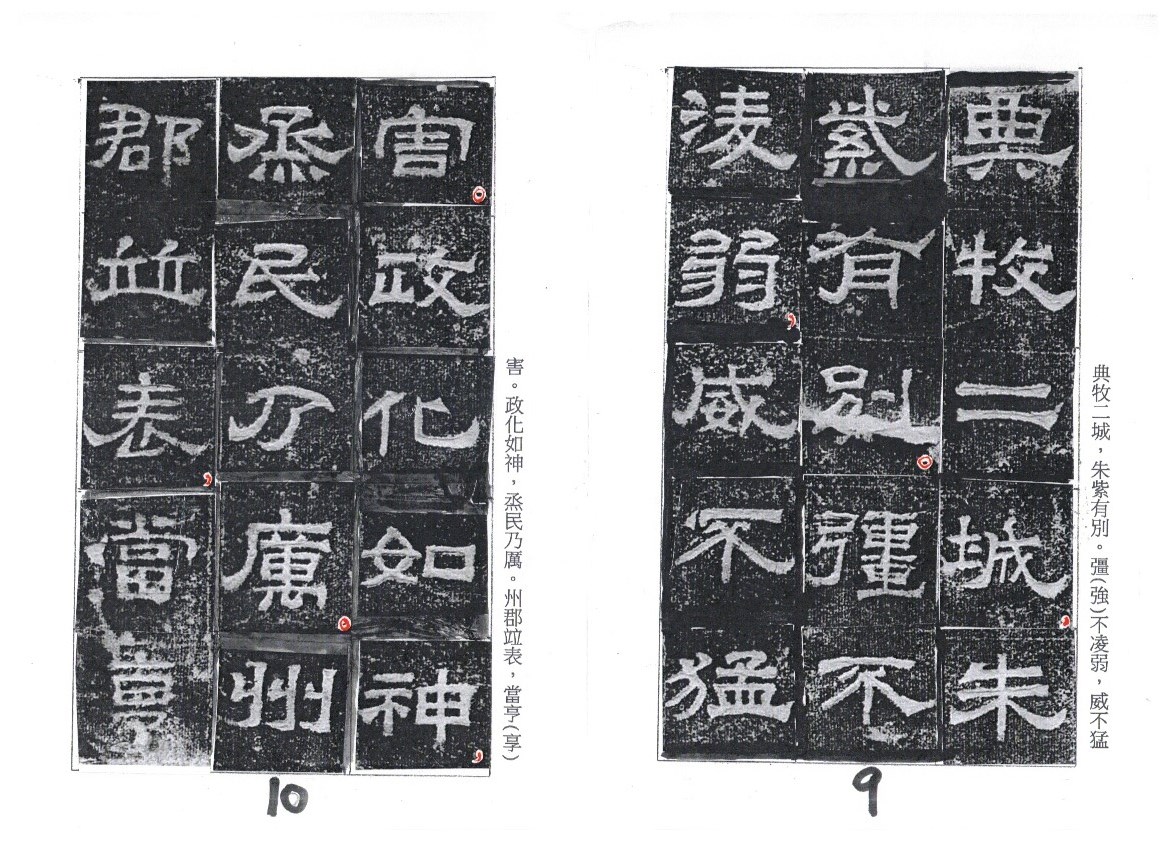 典牧二城，朱紫有別。彊(強)不凌弱，威不猛
典牧二城，朱
紫有別。彊不
淩弱，威不猛
9
害。政化如神，烝民乃厲。州郡竝表，當亨(享)
害。政化如神，
烝民乃厲。州
郡竝表，當亨
10